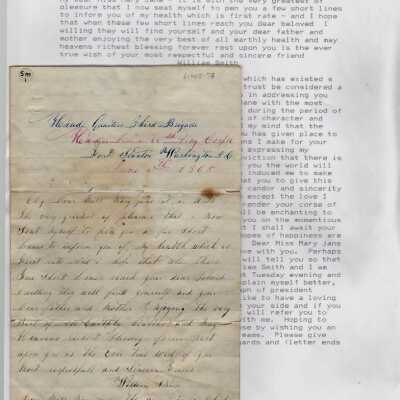 my dear Miss Mary Jane - it is with the very greatest of
pleasure that I now seat myself to pen you a few short lines
to inform you of my health which is first rate - and I hope
that when these few short lines reach you dear beloved I
willing they will find yourself and your dear father and
mother enjoying the very best of all earthly health and may
heavens richest blessing forever rest upon you is the ever
true wish of your most respectful and sincere friend
William Smith
which has existed a
trust be considered a
in addressing you
ame with the most
during the period of
of character and
my mind that the
ou has given place to
ns I make for your
expressing my
viction that there is
you the world will
induced me to make
at you to give this
candor and sincerity
except the love I
ender your corse of
will be enchanting to
you on the momentious
t I shall await your
opes of happiness are
Dear Miss Mary Jane
ve with you. Perhaps
will tell you so that
es Smith and I am
t Tuesday evening and
plain myself better,
ph of president
ike to have a loving
your side and if you
will refer you to
ith me. Hoping to
se by wishing you an
ease. Please give
ards and (letter ends
Sm
1
Head Quarters Third Brigade
Washington D.C.
1865
very greatest of pleasure that I now
Seat myself to pen you a few Short
Lines to inform you of my health which is
first rate and I hope that when these
few Short Lines reach you dear beloved
I willing they will find yourself and your
Dear father and Mother Enjoying the very
Best of all Earthly and may
Heavens richest Blessing forever Rest
upon you is the Ever true wish of your
Most respectfull and Sincere friend
William Smith